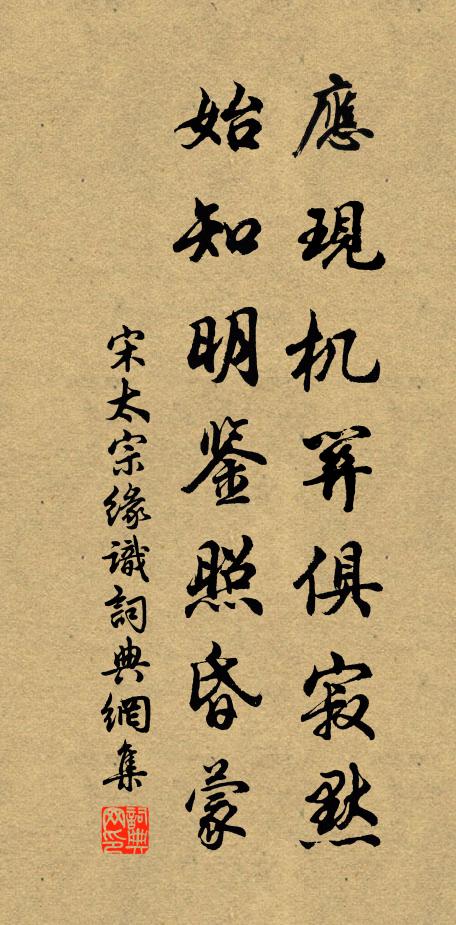 應現机筭俱寂默
始知明鉴照昏蒙
宋太宗緣識詞典網集
詞典
网印